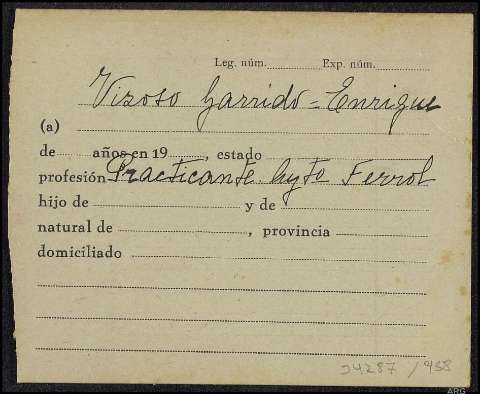 Leg. núm. Exp. núm.
Vizoso Garrido = Enrique
(a)
de años en 19 , estado
profesión Practicante Ayto Ferrol
hijo de y de
natural de , provincia
domiciliado
J4287 /958
ARG